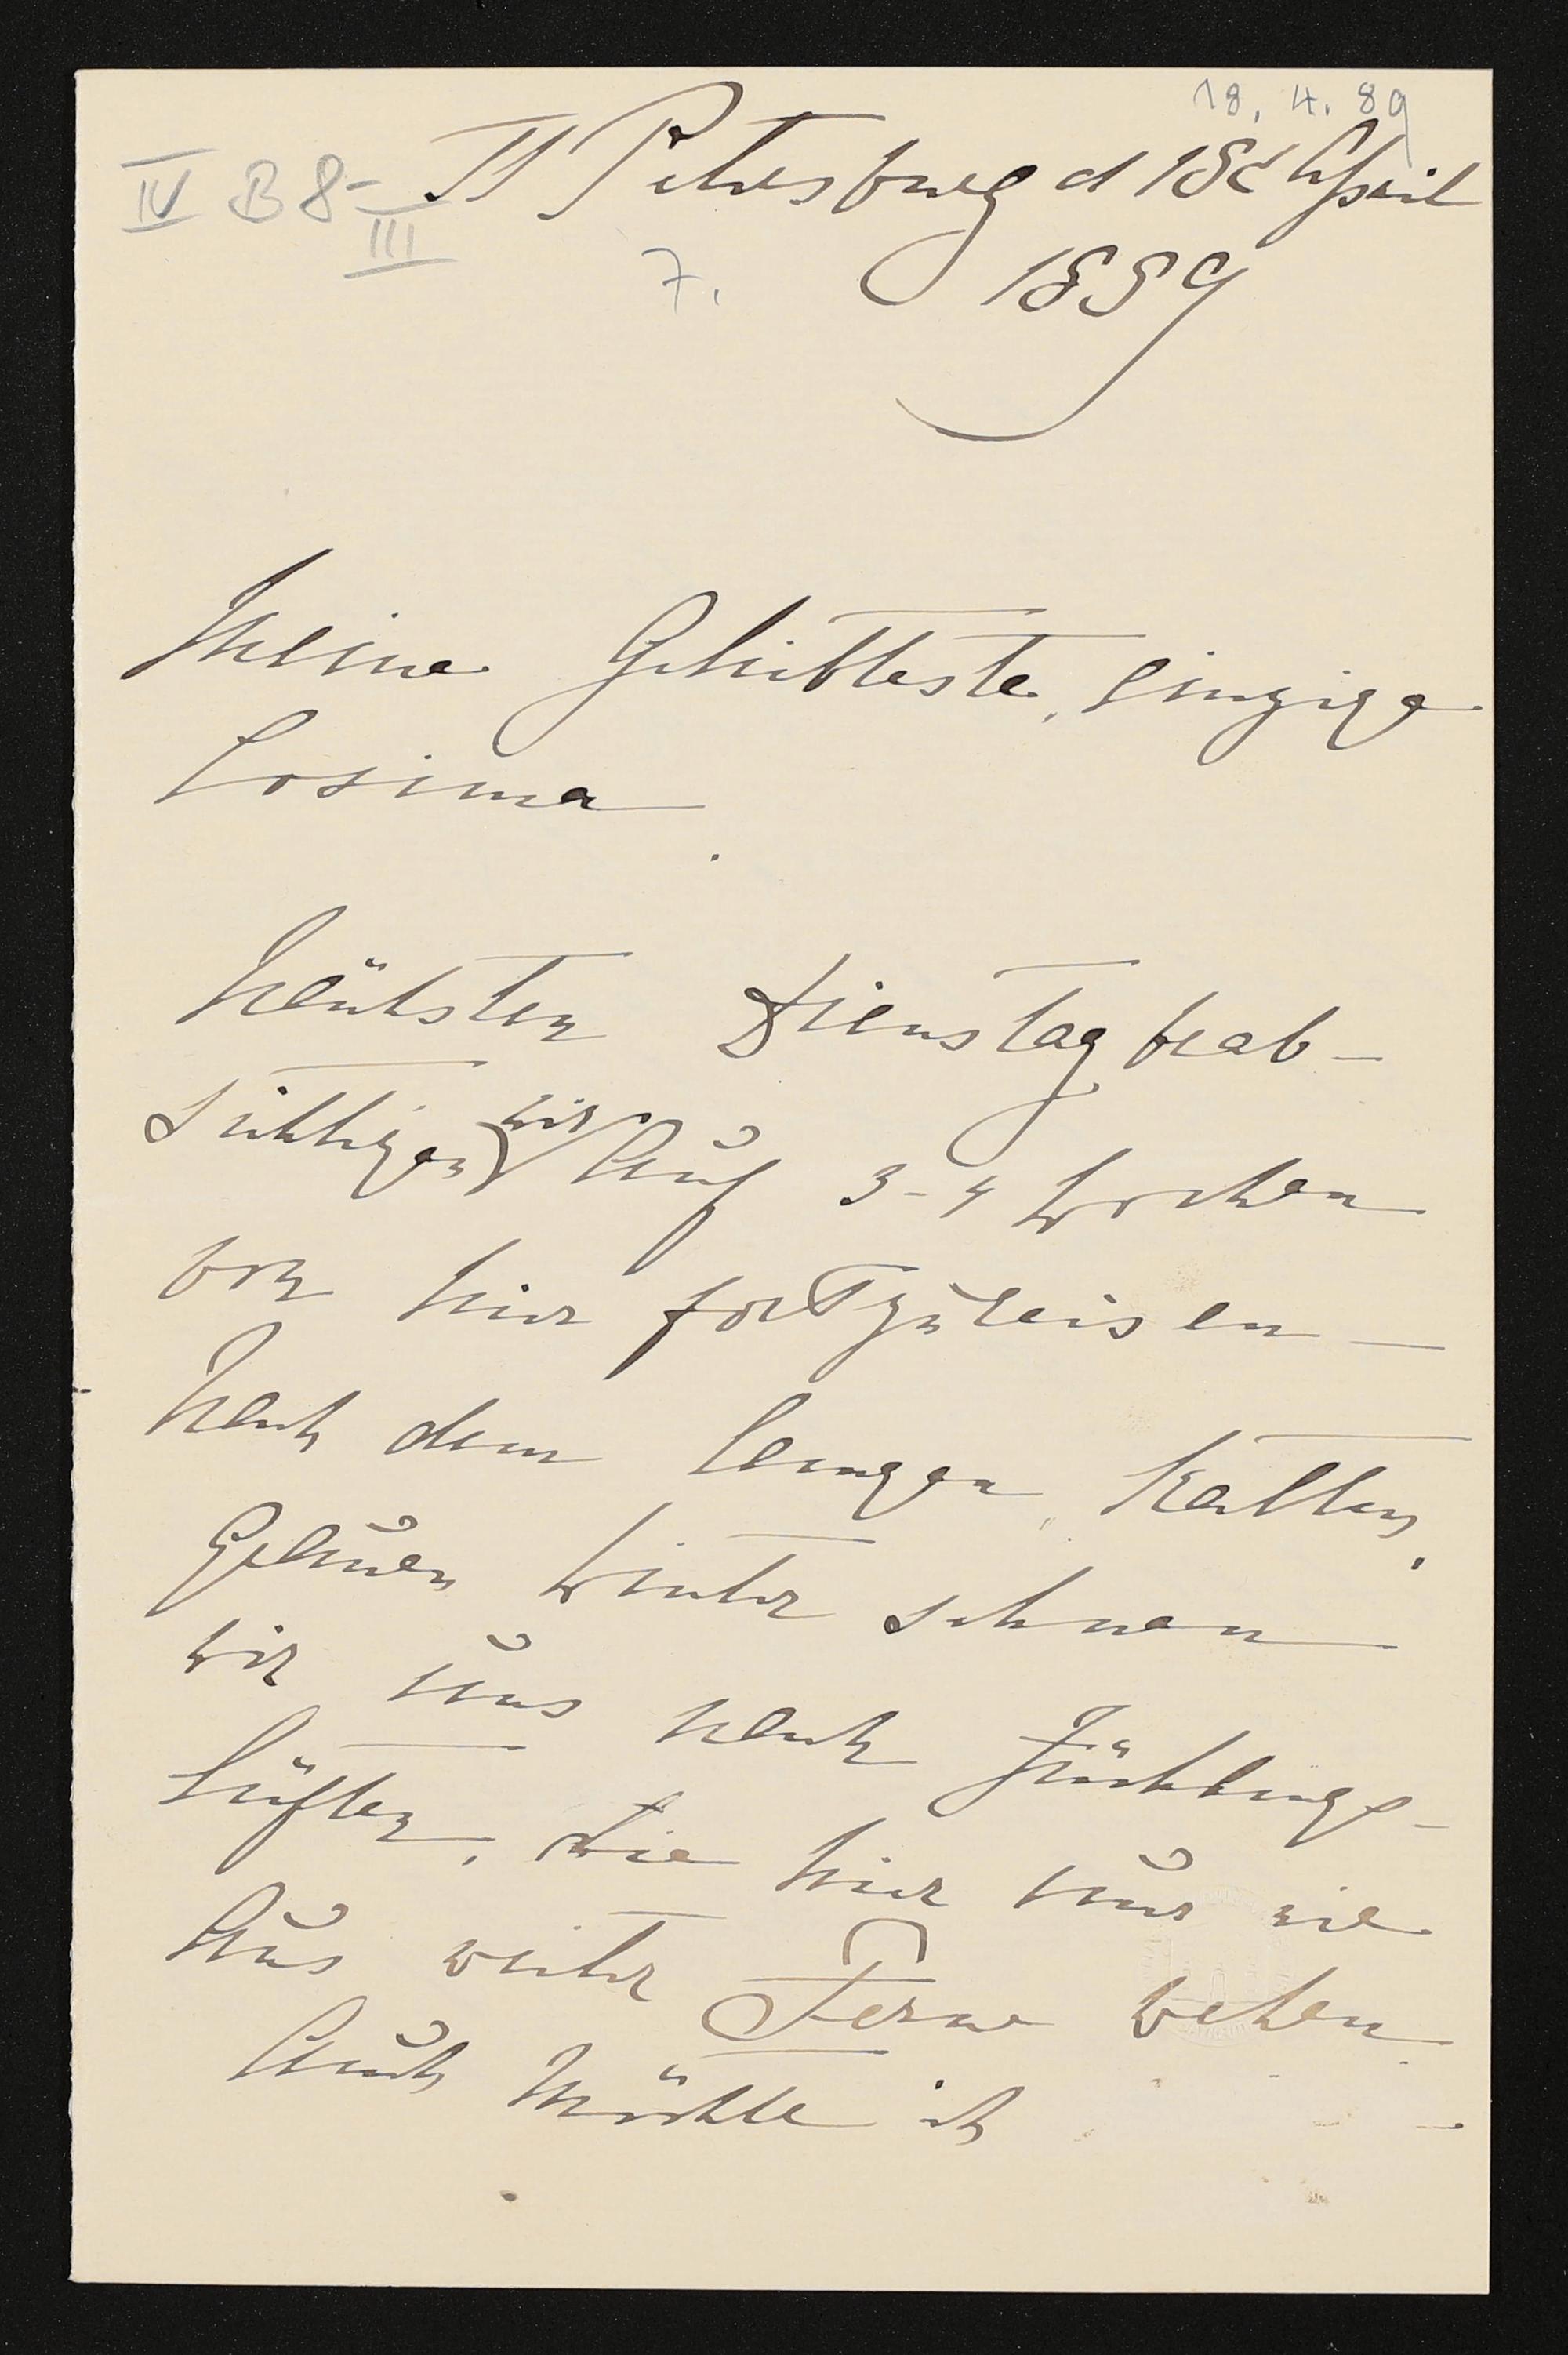 18. 4. 89
IV B 8-III
St Petersburg d 18t April
7.
1889
Meine Geliebteste, Einzige
Cosima
Nächsten Dienstag beab-
sichtigen wir auf 3-4 Wochen
von hier fortzureisen —
Nach dem langen, kalten,
Grauen Winter sehnen
wir uns nach Frühlings-
lüften, die hier nur wie
Aus weiter Ferne wehen.
Auch möchte ich